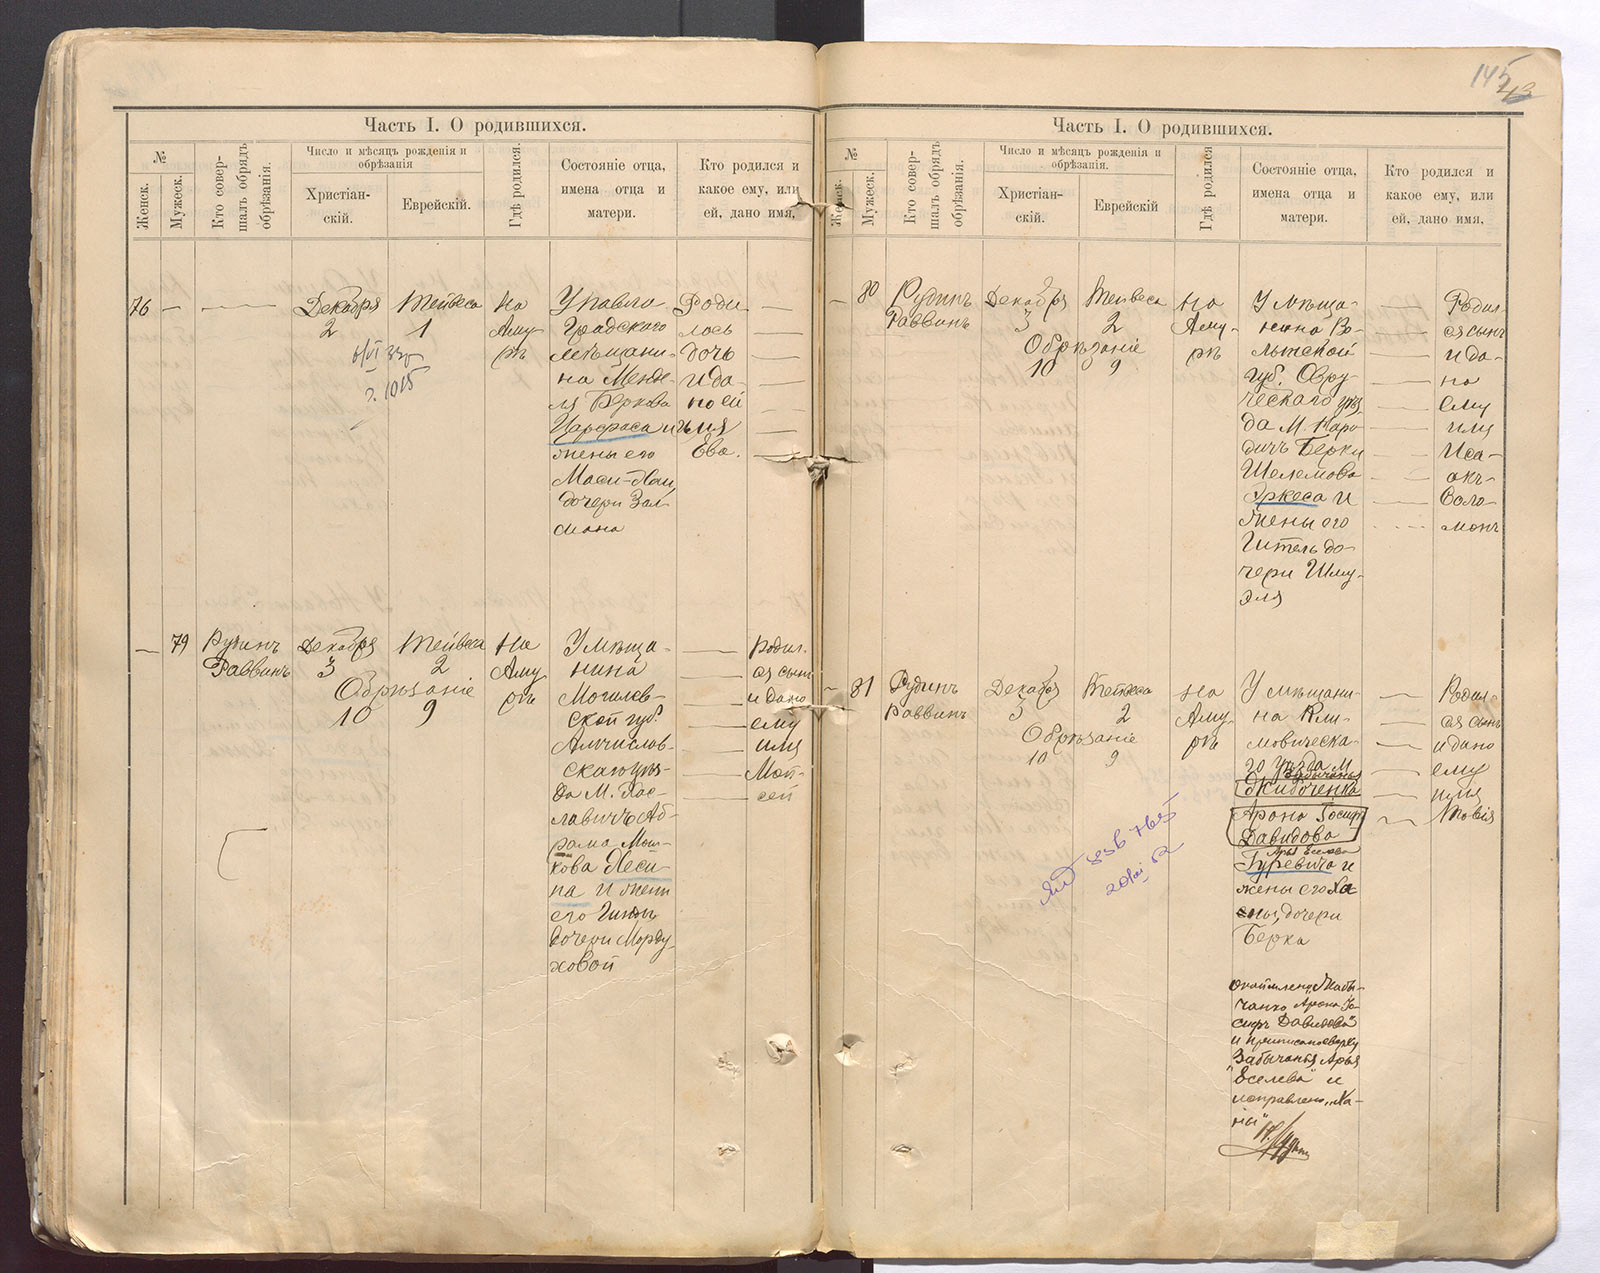 Часть I. О родившихся.
№
Женск.
Мужеск.
Кто совер-
шалъ обрядъ
обрѣзанія.
Число и мѣсяцъ рожденія и
обрѣзанія
Христіан-
скій.
Еврейскій.
Гдѣ родился.
Состояніе отца,
имена отца и
матери.
Кто родился и
какое ему, или
ей, дано имя,
76
Декабря
2
Тейвеса
1
На
Аму-
рѣ
У Павло-
градского
мѣщани-
на Менде-
ля Беркова
жены его
Маси-Хаи
дочери Зал-
мана
Роди
лась
дочь
и да-
но ей
имя
Ева.
79
Рудинъ
Раввинъ
Декабря
3
Тейвеса
2
Обрѣзаніе
10 9
На
Аму
рѣ
У мѣща-
нина
Могилев-
ской губ.
скаго уѣз-
да М. Хас-
лавичъ Аб-
рама Мош-
кова Песи-
на и жены
его
дочери Морду-
ховой
Родил-
ся сынъ
и дано
ему
имя
Мои-
сей
145
Часть I. О родившихся.
№
Женск.
Мужеск.
Кто совер-
шалъ обрядъ
обрѣзанія.
Число и мѣсяцъ рожденія и
обрѣзанія.
Христіан-
скій.
Еврейскій
Гдѣ родился
Состояніе отца,
имена отца и
матери.
Кто родился и
какое ему, или
ей, дано имя,
80
Рудинъ
Раввинъ
Декабря
3
Тейвеса
2
Обрѣзаніе
10 9
На
Аму-
рѣ
У мѣща-
нина Во-
лынской
губ. Овру-
ческаго уѣз
да М. Наро-
дичъ Берки
Шелемова
Эркеса и
жены его
Гитель до-
чери Шму-
эля
Родил
ся сынъ
и да-
но
ему
имя
Иса-
акъ-
Соло-
монъ
81
Рудинъ
Раввинъ
Декабря
3
Тейвеса
2
Обрѣзаніе
10 9
На
Аму
рѣ
У мѣщани-
на Кли-
мовическа-
го уѣзда М.
Забычанья
Арона Iосифъ
Давидова
Арья Еселева
Гуревича и
жены его Ха
ны, дочери
Берка
Родил-
ся сынъ
и дано
ему
имя
Товiя
Чанко Арона Iо-
сифъ Давидова"
и приписано сверху
Забычанья Арья
"Еселева" и
исправлено "Ха-
ны"